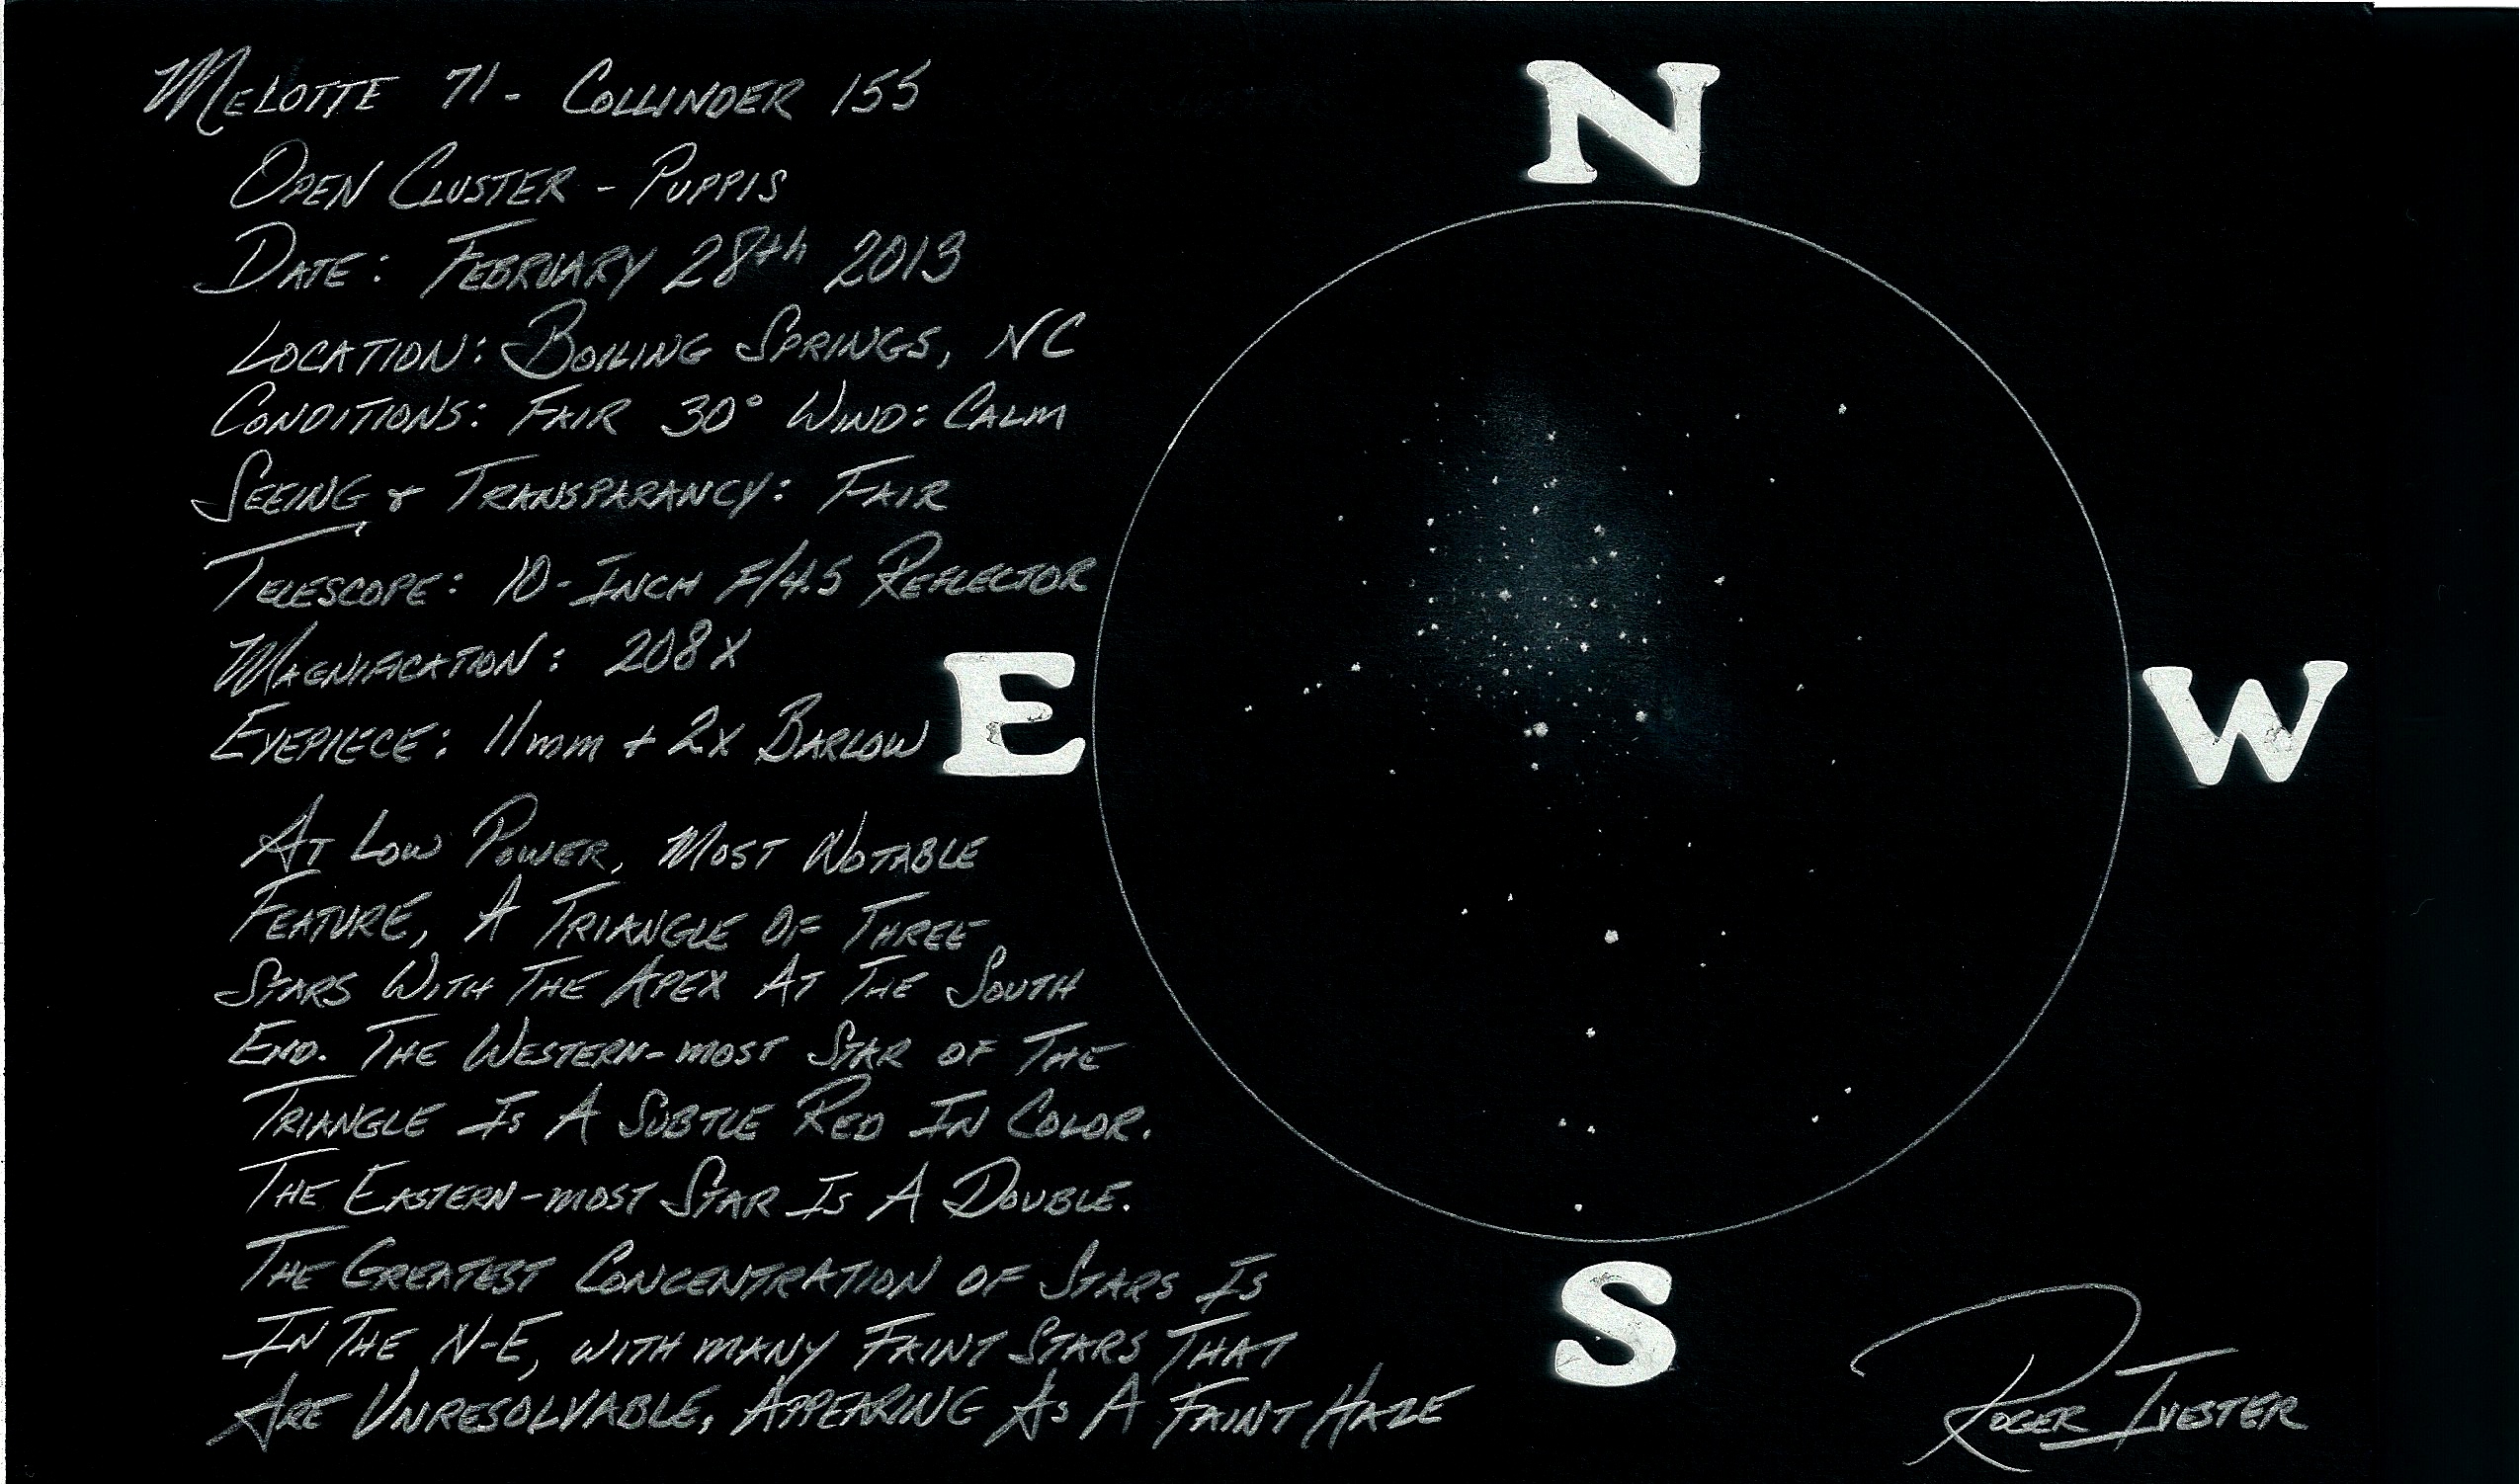 MELOTTE 71 - COLLINDER 155
OPEN CLUSTER - PUPPIS
DATE: FEBRUARY 28th 2013
LOCATION: BOILING SPRINGS, NC
CONDITIONS: FAIR 30° WIND: CALM
SEEING & TRANSPARANCY: FAIR
TELESCOPE: 10-INCH F/4.5 REFLECTOR
MAGNIFICATION: 208X
EYEPIECE: 11mm + 2X BARLOW
AT LOW POWER, MOST NOTABLE
FEATURE, A TRIANGLE OF THREE
STARS WITH THE APEX AT THE SOUTH
END. THE WESTERN-MOST STAR OF THE
TRIANGLE IS A SUBTLE RED IN COLOR.
THE EASTERN-MOST STAR IS A DOUBLE.
THE GREATEST CONCENTRATION OF STARS IS
IN THE N-E, WITH MANY FAINT STARS THAT
ARE UNRESOLVABLE, APPEARING AS A FAINT HAZE
N
E
W
S
ROGER IVESTER